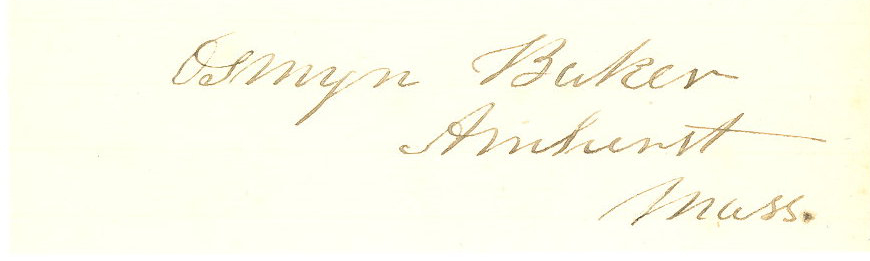 Osmyn Baker
Amherst
Mass.